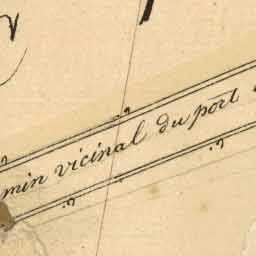 min vicinal du port